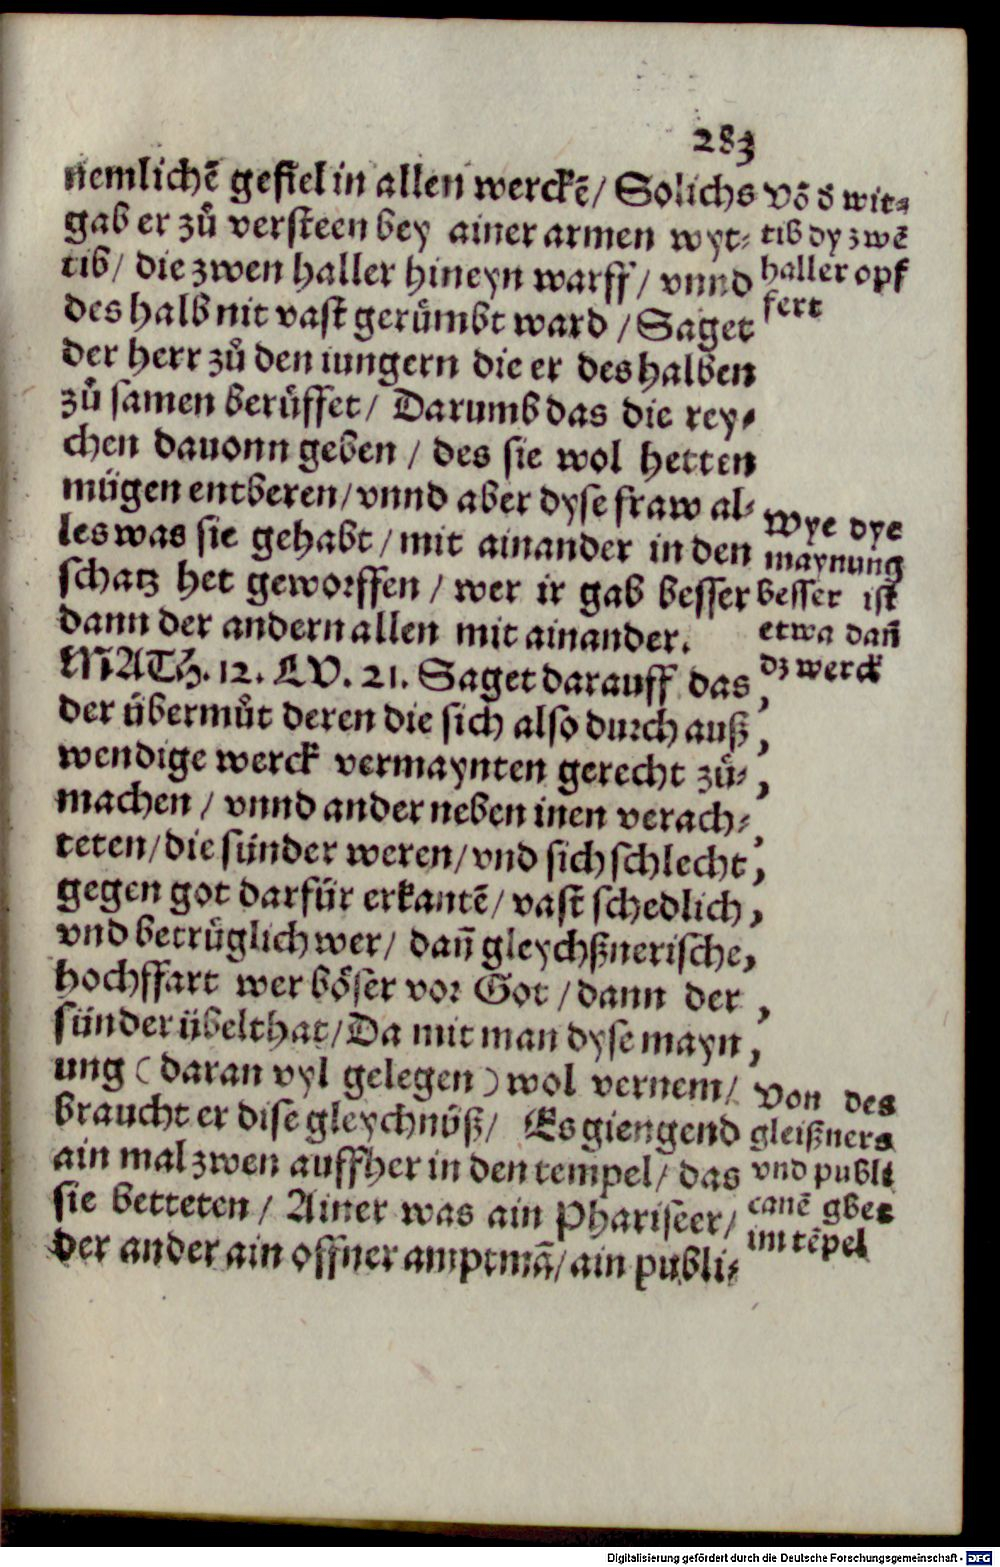 283
nemlichē gefiel in allen werckē/ Solichs
gab er zů versteen bey ainer armen wyt⸗
tib/ die zwen haller hineyn warff/ vnnd
des halb nit vast gerůmbt ward/ Saget
der herr zů den iungern die er des halben
zů samen berůffet/ Darumb das die rey⸗
chen dauonn geben/ des sie wol hetten
mügen entberen/ vnnd aber dyse fraw al⸗
les was sie gehabt/ mit ainander in den
schatz het geworffen/ wer ir gab besser
dann der andern allen mit ainander.
MATH. 12. LV. 21. Saget darauff das,
der übermůt deren die sich also durch auß,
wendige werck vermaynten gerecht zů⸗,
machen/ vnnd ander neben inen verach⸗,
teten/ die sünder weren/ vnd sich schlecht,
gegen got darfür erkantē/ vast schedlich,
vnd betrüglich wer/ dañ gleychßnerische,
hochffart wer böser vor Got/ dann der,
sünder übelthat/ Da mit man dyse mayn,
ung (daran vyl gelegen) wol vernem/
braucht er dise gleychnüß/ Es giengend
ain mal zwen auffher in den tempel/ das
sie betteten/ Ainer was ain Phariseer/
der ander ain offner amptmā/ ain publi⸗
vō d wit⸗
tib dy zwē
haller opf
fert
Wye dye
maynung
besser ist
etwa dañ
dz werck
Von des
gleißners
vnd publi
canē gbet
im tēpel
Digitalisierung gefördert durch die Deutsche Forschungsgemeinschaft - DFG